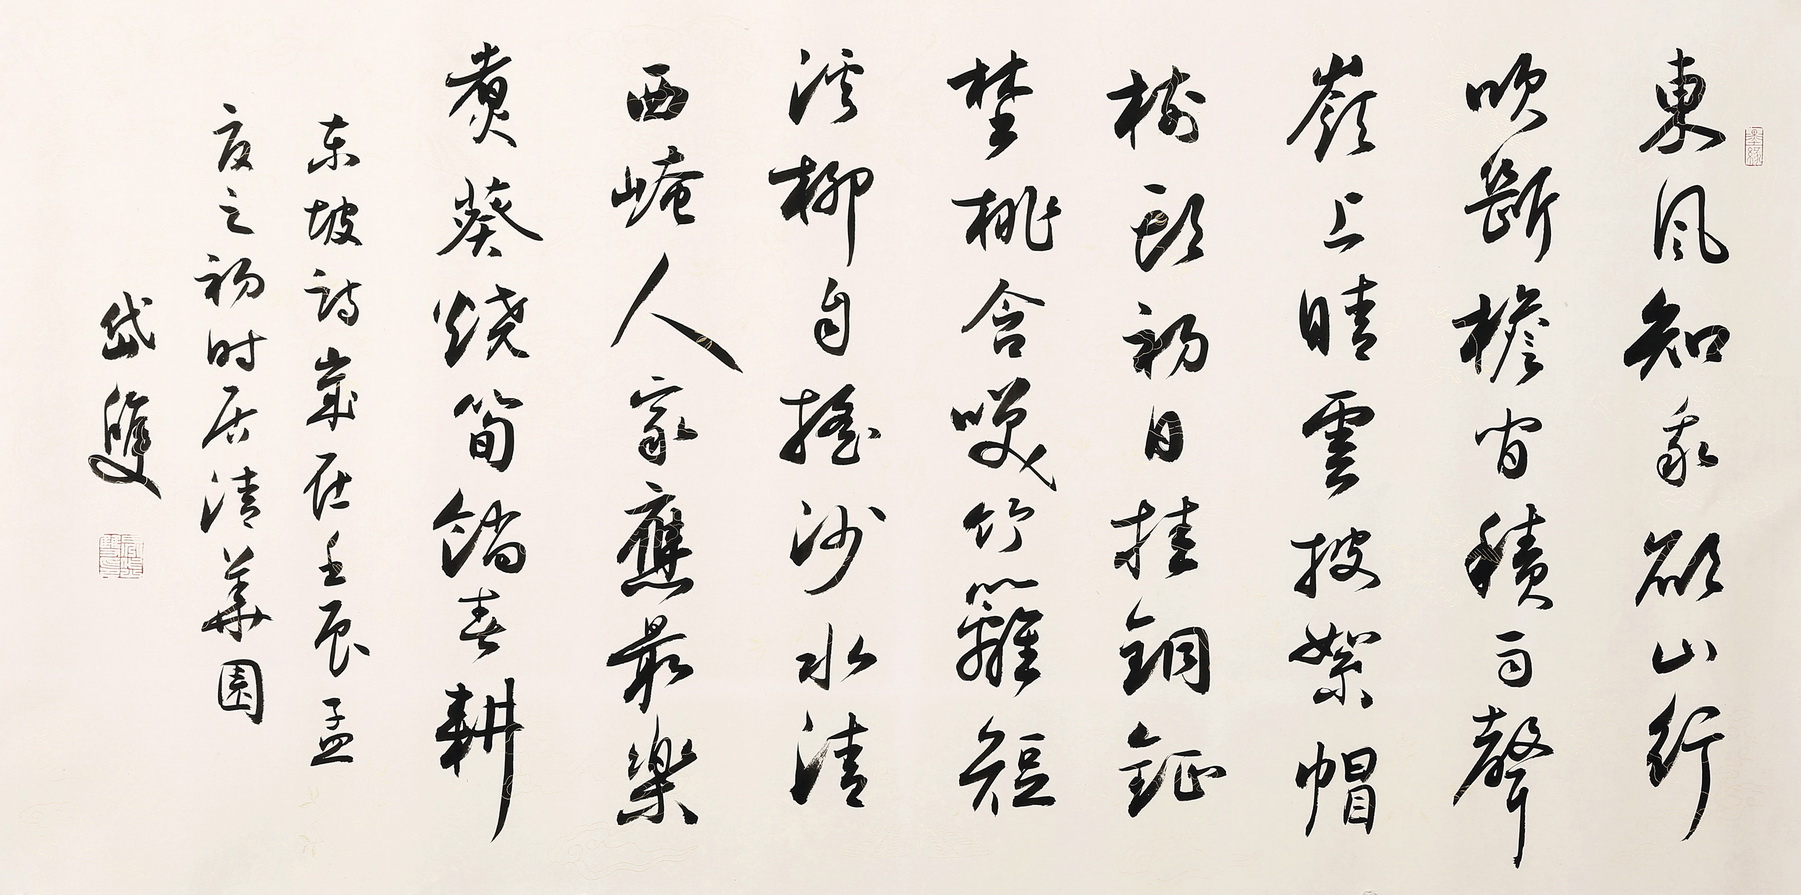 東風知我欲山行
吹斷檐间積雨聲
嶺上晴雲披絮帽
樹頭初日挂銅鉦
埜桃含咲竹籬短
溪柳自搖沙水清
西崦人家應最樂
煮葵燒筍餉春耕
东坡詩歲在壬辰孟
夏之初时居清華園
岱
墨緣